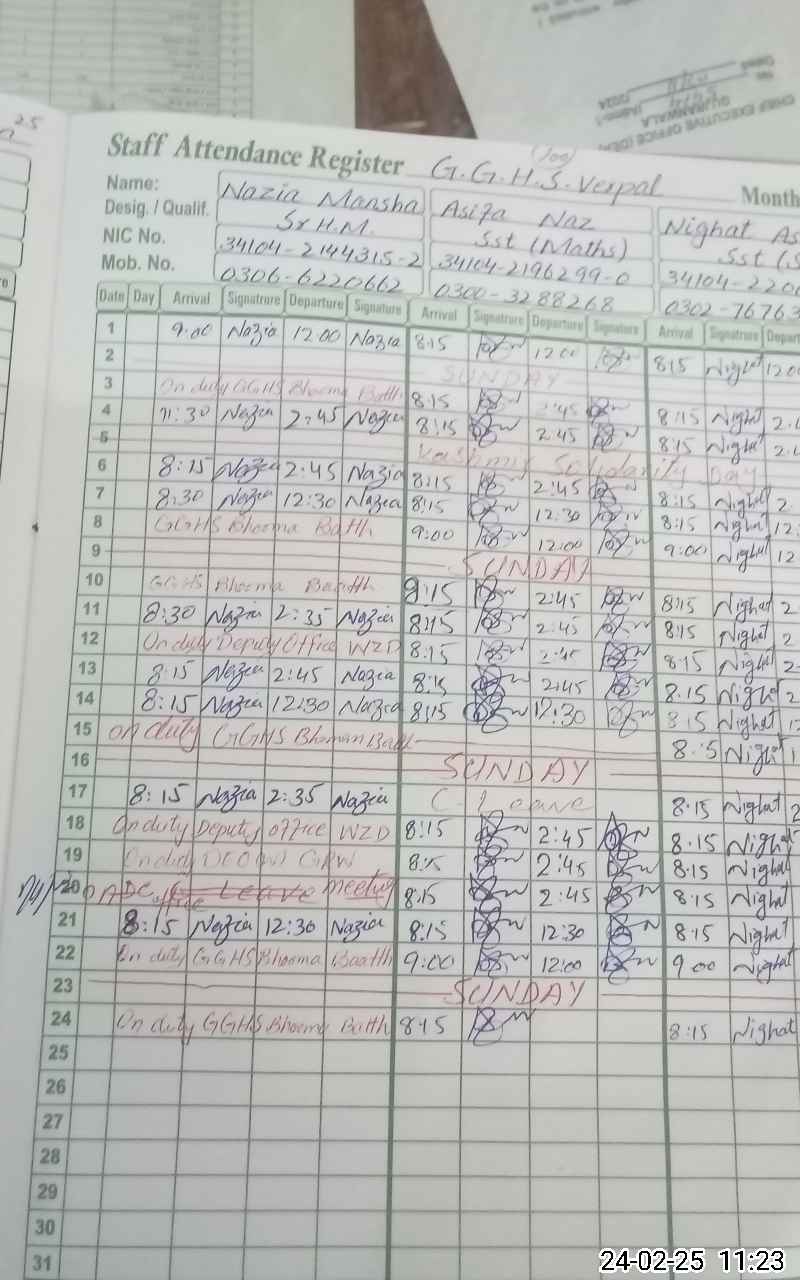 CHIEF EXECUTIVE OFFICE (DEA)
GUJRANWALA
25
Staff Attendance Register G.G.H.S. Verpal Month
Name: Nazia Mansha Asifa Naz Nighat As
Desig. / Qualif. Sr H.M. Sst (Maths) Sst (S
NIC No. 34104-2144315-2 34104-2196299-0 34104-220
Mob. No. 0306-6220662 0300-3288268 0302-76763
Date Day Arrival Signatrure Departure Signature Arrival Signatrure Departure Signature Arrival Signatrure Depart
1 9:00 Nazia 12:00 Nazia 8:15 12:00 8:15 Nighat 12:00
2 SUNDAY
3 On duty GGHS Bhoma Batth 8:15 2:45 8:15 Nighat 2.
4 11:30 Nazia 2:45 Nazia 8:15 2:45 8:15 Nighat 2.
5 Kashmir Solidarity Day
6 8:15 Nazia 2:45 Nazia 8:15 2:45 8:15 Nighat 2
7 8:30 Nazia 12:30 Nazia 8:15 12:30 8:15 Nighat 12:
8 GGHS Bhoma Batth 9:00 12:00 9:00 Nighat 12
9 SUNDAY
10 GGHS Bhoma Batth 8:15 2:45 8:15 Nighat 2
11 8:30 Nazia 2:35 Nazia 8:15 2:45 8:15 Nighat 2
12 On duty Deputy Office WZD 8:15 2:45 8:15 Nighat 2
13 8:15 Nazia 2:45 Nazia 8:15 2:45 8.15 Nighat 2
14 8:15 Nazia 12:30 Nazia 8:15 12:30 8:15 Nighat 12
15 on duty GGHS Bhoman Batth 8:15 Nighat 1
16 SUNDAY
17 8:15 Nazia 2:35 Nazia C. Leave 8.15 Nighat 2
18 On duty Deputy office WZD 8:15 2:45 8.15 Nighat
19 On duty GRW 8:15 2:45 8.15 Nighat
20 ADC office Leave meeting 8:15 2:45 8:15 Nighat
21 8:15 Nazia 12:30 Nazia 8:15 12:30 8:15 Nighat
22 On duty GGHS Bhoma Baatth 9:00 12:00 9 00 Nighat
23 SUNDAY
24 On duty GGHS Bhoma Batth 8:15 8:15 Nighat
25
26
27
28
29
30
31
24-02-25 11:23